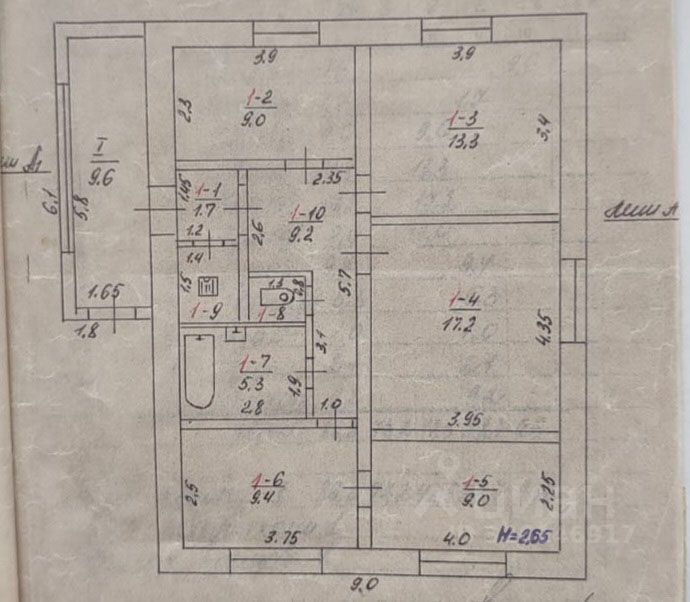 3.9
3.9
1-2
9.0
2.3
1-3
13.3
3.4
I
9.6
6.1
5.8
1.65
1.8
1-1
1.7
1.45
1.2
2.35
1-10
9.2
2.6
5.7
1.4
1.5
1-9
1.3
1-8
1-4
17.2
4.35
3.95
3.1
1-7
5.3
2.8
1.9
1.0
1-6
9.4
2.5
3.75
1-5
9.0
2.25
4.0
H=2,65
9.0